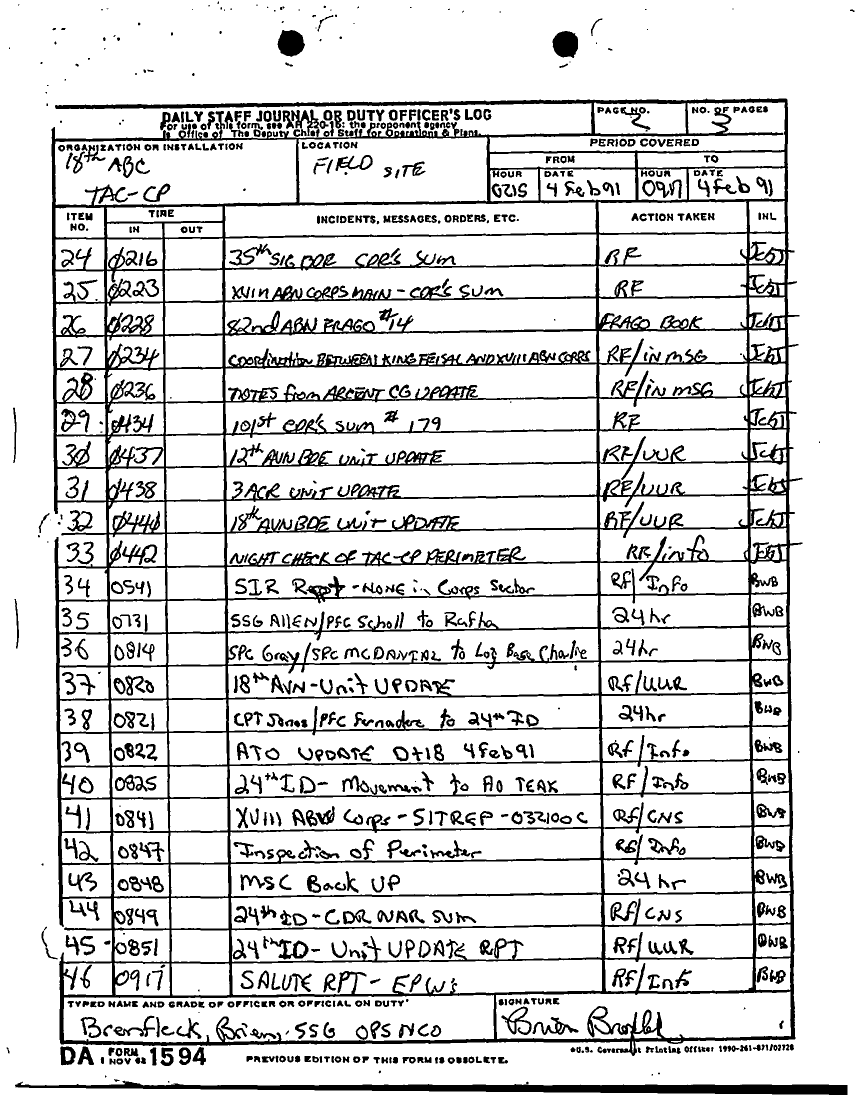 DAILY STAFF JOURNAL OR DUTY OFFICER'S LOG
For use of this form, see AR 220-15; the proponent agency
is Office of The Deputy Chief of Staff for Operations & Plans.
PAGE NO. 2
NO. OF PAGES 3
ORGANIZATION OR INSTALLATION
18th ABC
TAC-CP
LOCATION
FIELD SITE
PERIOD COVERED
FROM TO
HOUR DATE HOUR DATE
0215 4 Feb 91 0917 4 Feb 91
ITEM NO. TIME IN OUT INCIDENTS, MESSAGES, ORDERS, ETC. ACTION TAKEN INL
24 0216 35th SIG BDE CDR'S SUM RF
25 0223 XVIII ABN CORPS MAIN - CDR'S SUM RF
26 0228 82nd ABN FRAGO #14 FRAGO BOOK
27 0234 COORDINATION BETWEEN KING FEISAL AND XVIII ABN CORPS RF/IN MSG
28 0236 NOTES from ARCENT CG UPDATE RF/IN MSG
29 0434 101st CDR'S SUM # 179 RF
30 0437 12th AVN BDE UNIT UPDATE RF/UUR
31 0438 3 ACR UNIT UPDATE RF/UUR
32 0440 18th AVN BDE UNIT UPDATE RF/UUR
33 0442 NIGHT CHECK OF TAC-CP PERIMETER RF/info
34 0541 SIR Rept - NONE in Corps Sector Rf/Info BWB
35 0731 SSG ALLEN/PFC Scholl to Rafha 24hr BWB
36 0814 SPC Gray/SPC MCDANIAL to Log Base Charlie 24hr BWB
37 0820 18th AVN-Unit UPDATE Rf/UUR BWB
38 0821 CPT Jones/PFC to 24th ID 24hr BWB
39 0822 ATO UPDATE D+18 4Feb91 Rf/Info BWB
40 0825 24th ID- Movement to AO TEAK RF/Info BWB
41 0841 XVIII ABN Corps - SITREP - 032100C Rf/CNS BWB
42 0847 Inspection of Perimeter Rf/Info BWB
43 0848 MSC Back UP 24 hr BWB
44 0849 24th ID-CDR NAR SUM Rf/CNS BWB
45 0851 24th ID- Unit UPDATE RPT RF/UUR BWB
46 0917 SALUTE RPT- EPW's Rf/Info BWB
TYPED NAME AND GRADE OF OFFICER OR OFFICIAL ON DUTY
SSG OPS NCO
SIGNATURE
Brian
DA FORM 1 NOV 62 1594
PREVIOUS EDITION OF THIS FORM IS OBSOLETE.
*U.S. Government Printing Office: 1990-261-871/02728